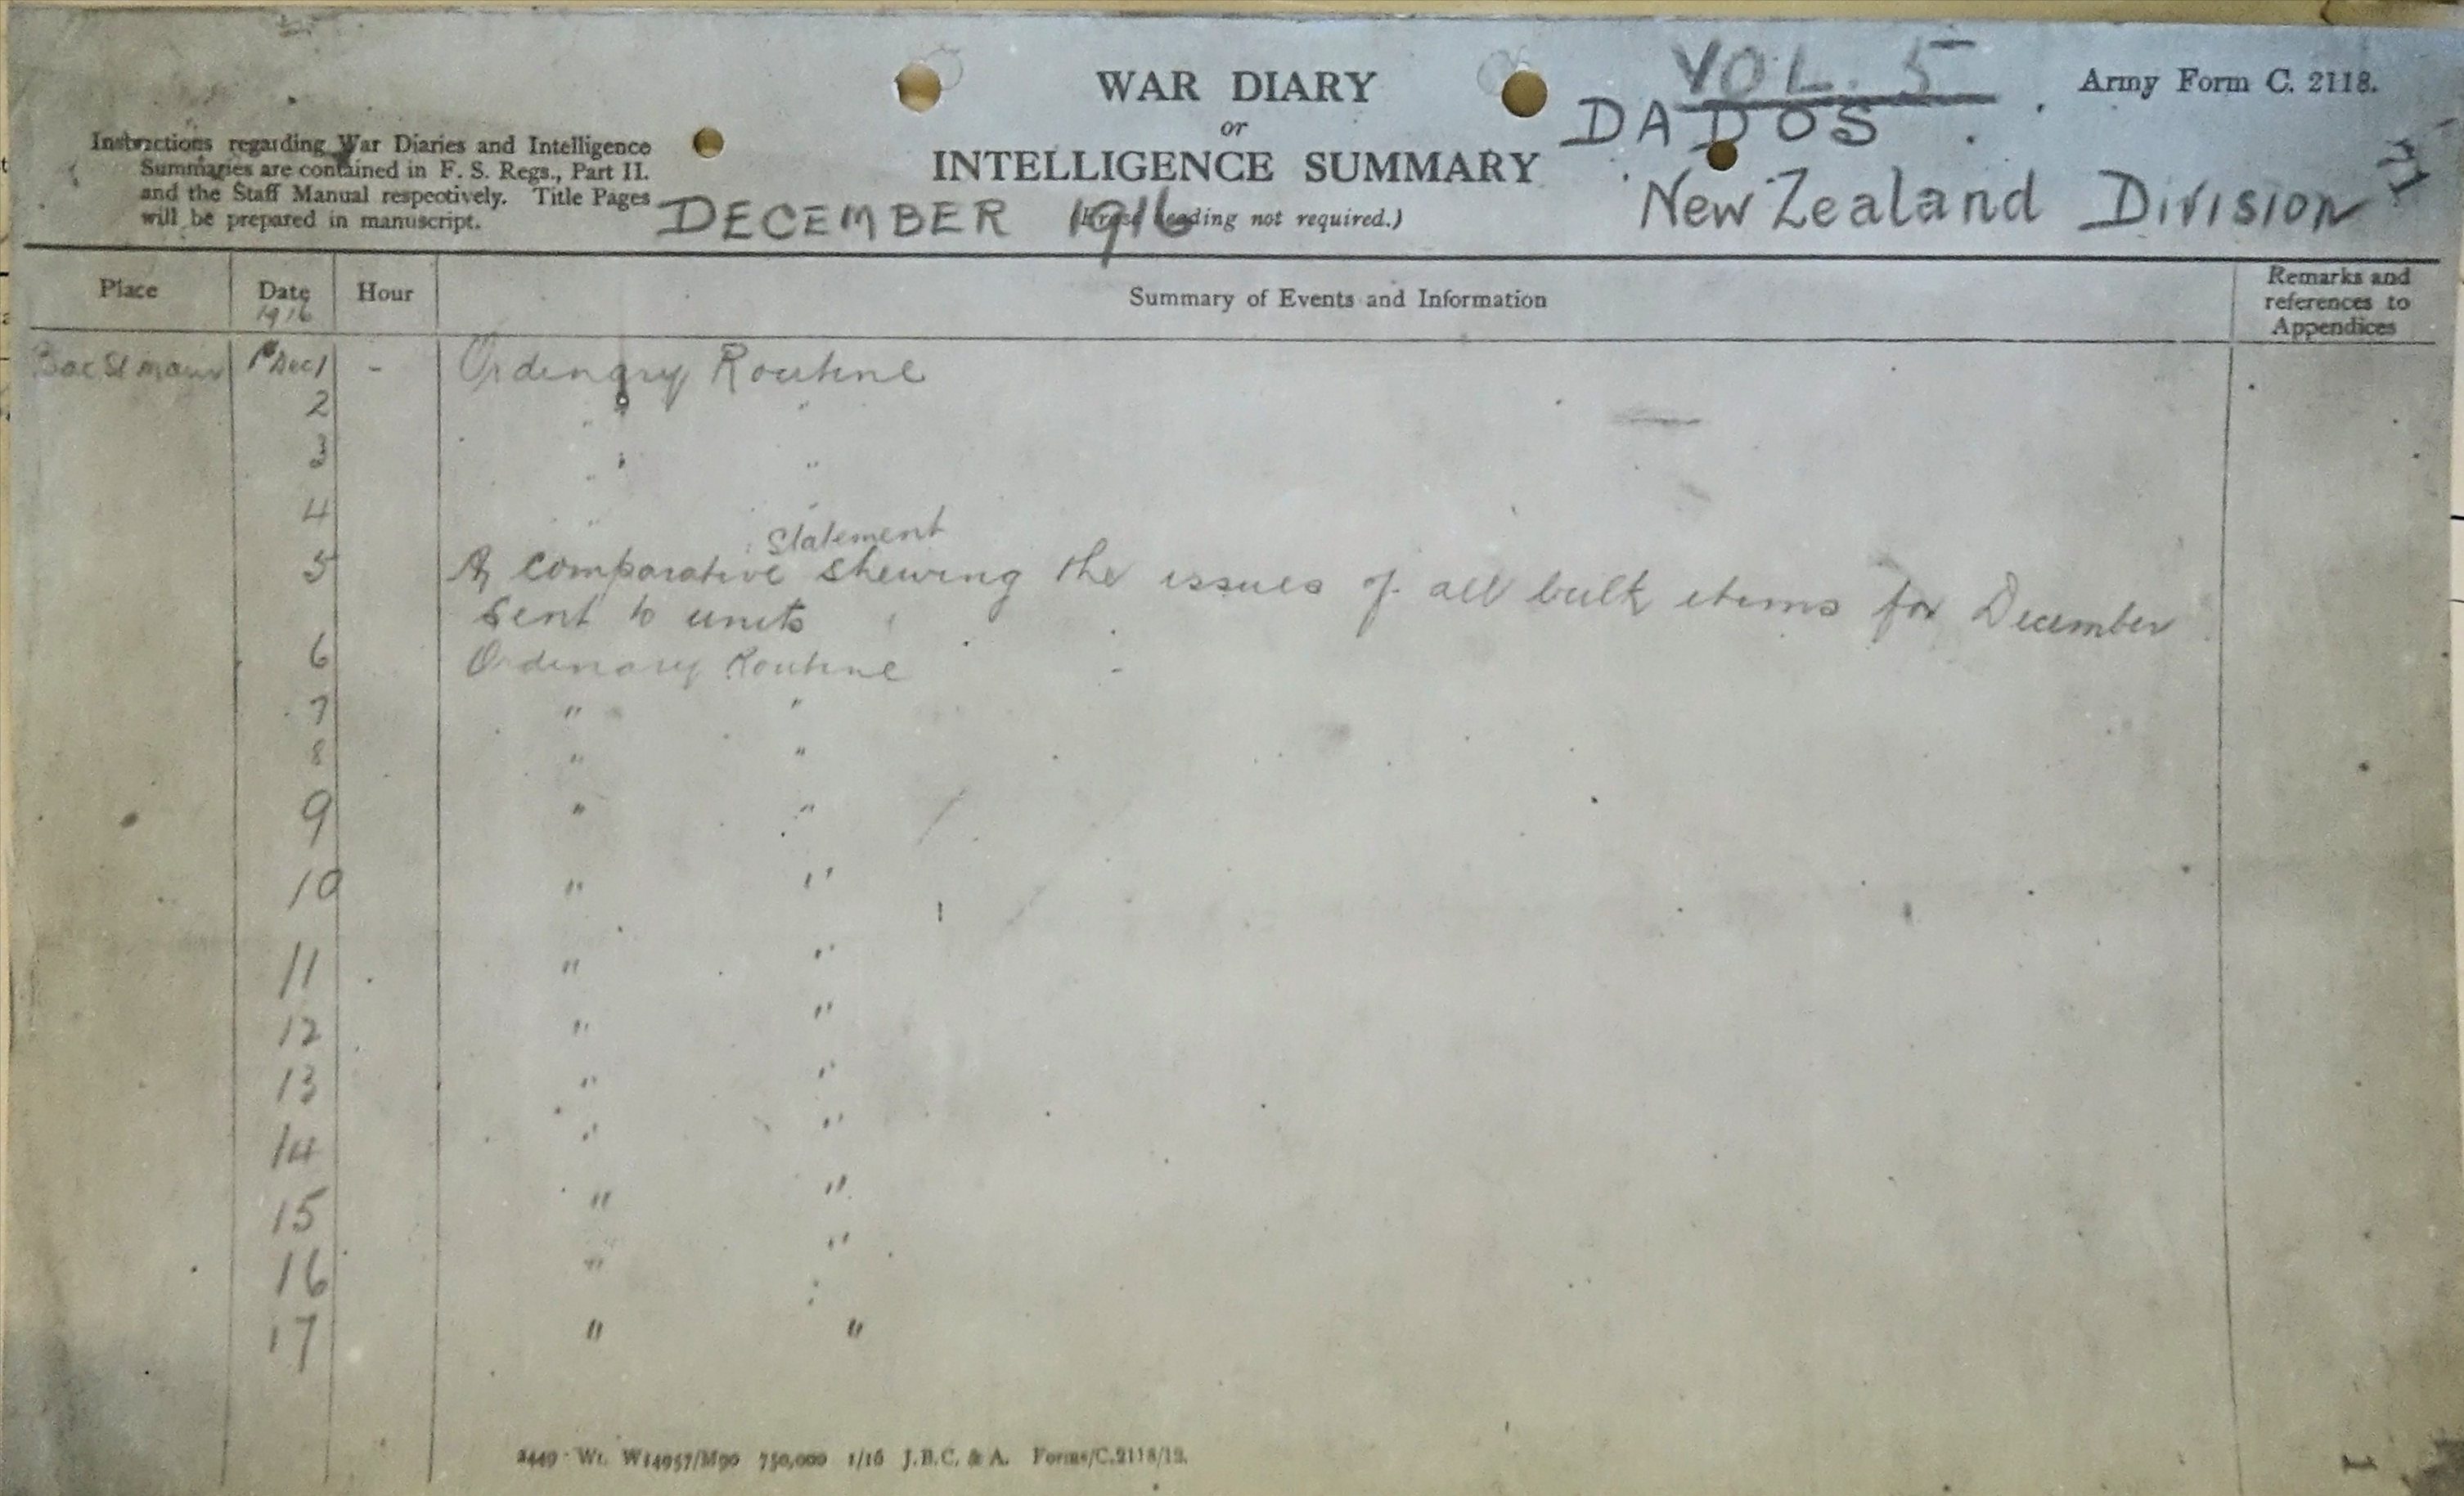 VOL. 5
WAR DIARY
Army Form C. 2118.
or
DADOS.
Instructions regarding War Diaries and Intelligence
Summaries are contained in F. S. Regs., Part II.
and the Staff Manual respectively. Title Pages
will be prepared in manuscript.
INTELLIGENCE SUMMARY
New Zealand Division
DECEMBER 1916
(Erase heading not required.)
Place
Date
1916
Hour
Summary of Events and Information
Remarks and
references to
Appendices
Bac St Maur 1st Dec - Ordinary Routine
2 " "
3 " "
4 "
statement
5 A comparative shewing the issues of all bulk items for December
sent to units
6 Ordinary Routine
7 " "
8 " "
9 " "
10 " "
11 " "
12 " "
13 " "
14 " "
15 " "
16 " "
17 " "
2449 Wt. W14957/M90 750,000 1/16 J.B.C. & A. Forms/C.2118/12.